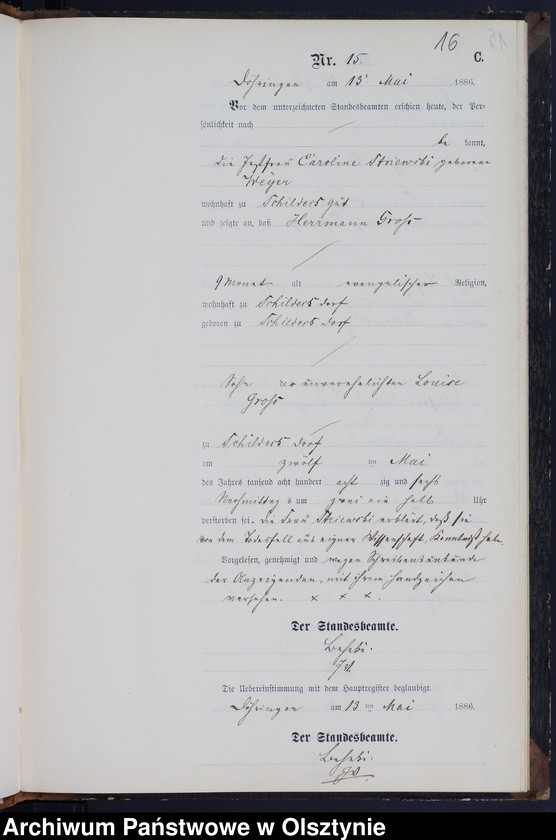 16
Nr. 15. C.
Döhringen am 13 Mai 1886.
Vor dem unterzeichneten Standesbeamten erschien heute, der Per-
sönlichkeit nach
be kannt,
die Jestfrau Caroline Striewski geborene
Weyer
wohnhaft zu Schilders gut
und zeigte an, daß Herrmann Grohs
9 Monat alt evangelischer Religion,
wohnhaft zu Schilders dorf
geboren zu Schilders dorf
Sohn der unverehelichten Louise
Grohs
zu Schilders dorf
am zwölf ten Mai
des Jahres tausend acht hundert acht zig und sechs
Nachmittags um zwei ein halb Uhr
verstorben sei. Die Frau Striewski erklärt, daß sie
von dem Todesfall aus eigner Wissenschaft, Kenntniß habe.
Vorgelesen, genehmigt und wegen Schreibensunkunde
der Anzeigenden, mit ihrem Handzeichen
versehen. x x x.
Der Standesbeamte.
Die Uebereinstimmung mit dem Hauptregister beglaubigt.
Döhringen am 13 ten Mai 1886.
Der Standesbeamte.
Archiwum Państwowe w Olsztynie